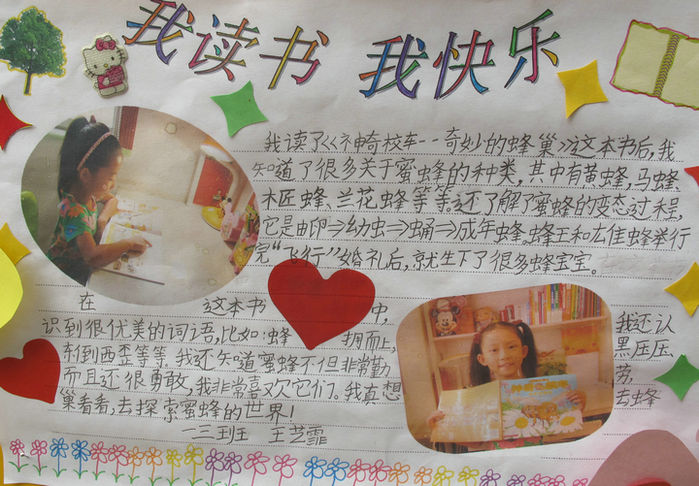 我读书 我快乐
我读了<<神奇校车--奇妙的蜂巢>>这本书后,我
知道了很多关于蜜蜂的种类,其中有黄蜂,马蜂、
木匠蜂、兰花蜂等等。还了解了蜜蜂的变态过程,
它是由卵⇒幼虫⇒蛹⇒成年蜂。蜂王和雄蜂举行
完“飞行”婚礼后,就生下了很多蜂宝宝。
在 这本书 中, 我还认
识到很优美的词语,比如:蜂 拥而上, 黑压压、
东倒西歪等等。我还知道蜜蜂不但非常勤 劳,
而且还很勇敢,我非常喜欢它们。我真想 去蜂
巢看看,去探索蜜蜂的世界!
一三班 王艺霏